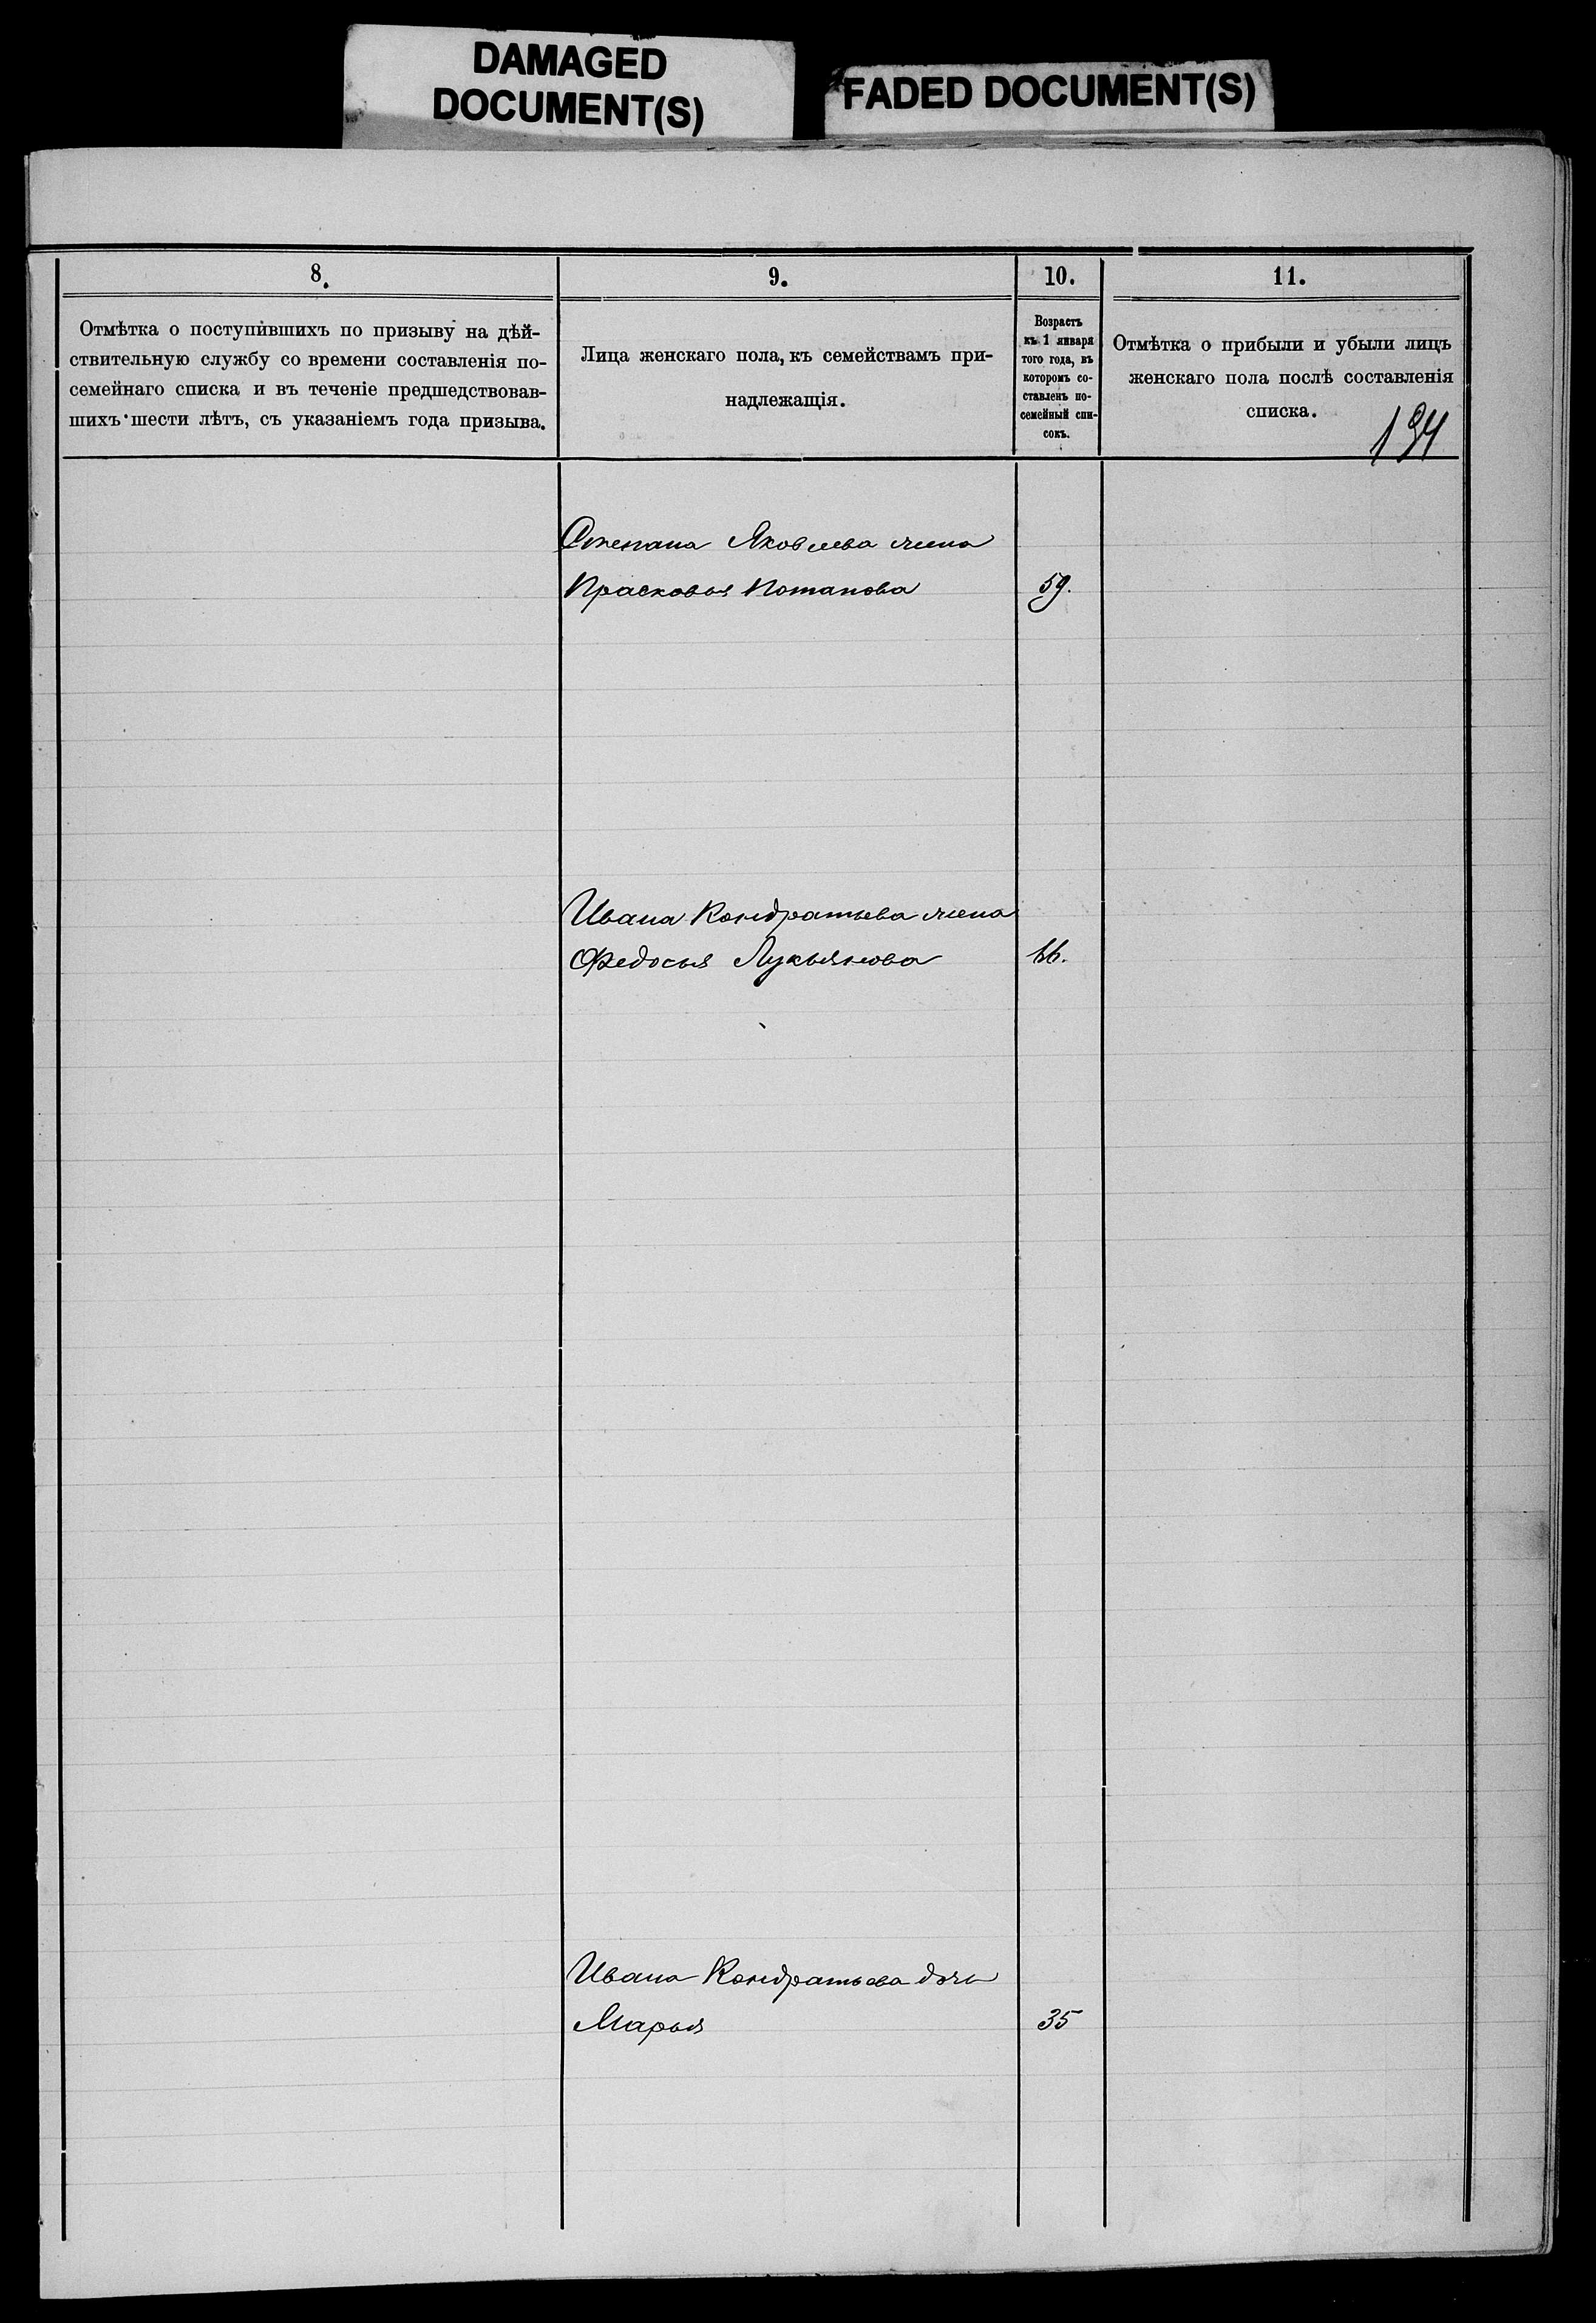 DAMAGED
DOCUMENT(S)
FADED DOCUMENT(S)
8.
9.
10.
11.
Отмѣтка о поступившихъ по призыву на дѣй-
ствительную службу со времени составленія по-
семейнаго списка и въ теченіе предшедствовав-
шихъ шести лѣтъ, съ указаніемъ года призыва.
Лица женскаго пола, къ семействамъ при-
надлежащія.
Возрастъ
къ 1 января
того года, въ
которомъ со-
ставленъ по-
семейный спи-
сокъ.
Отмѣтка о прибыли и убыли лицъ
женскаго пола послѣ составленія
списка.
194
Степана Яковлева жена
Прасковья Потапова 59.
Ивана Кондратьева жена
Федосья Лукьянова
Ивана Кондратьева дочь
Марья 35